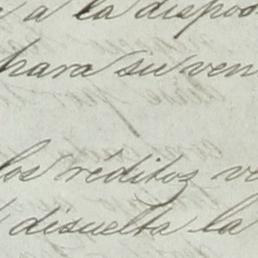 a la dispos
para su ven
los réditos v
disuelta la